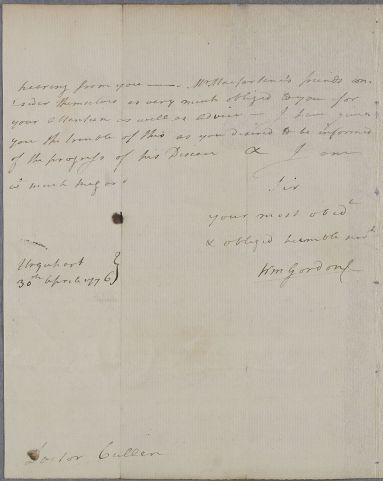 hearing from you —— . Mr Macfarlane's friends con-
sider themselves as very much obliged to you for
your attention as well as advice — I have given
you the trouble of this as you desired to be informed
of the progress of his Disease & I am
wt much regard
Sir
your most obedt
& obliged humble servt
Wm Gordon
Urquhart
30th April 1776
Doctor Cullen